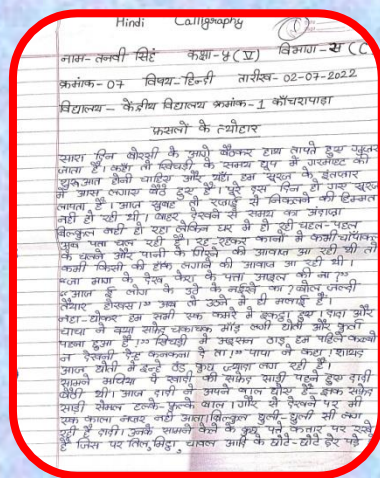 Hindi Calligraphy
नाम- तनवी सिंह कक्षा-५ (V) विभाग-स (C
क्रमांक-07 विषय-हिन्दी तारीख-02-07-2022
विद्यालय- केंद्रीय विद्यालय क्रमांक-1 काँचरापाड़ा
फ़सलों के त्योहार
सारा दिन बोरसी के आगे बैठकर हाथ तापते हुए गुज़र
जाता है। कहाँ तो खिचड़ी के समय धूप में गरमाहट की
शुरुआत होनी चाहिए और यहाँ हम सूरज के इंतज़ार
में आस लगाए बैठे हुए हैं। पूरे दस दिन हो गए सूरज
लापता है। आज सुबह तो रजाई से निकलने की हिम्मत
नहीं हो रही थी। बाहर देखने से समय का अंदाज़ा
बिल्कुल नहीं हो रहा लेकिन घर में हो रही चहल-पहल
अब पता चल रही है। रह-रहकर कानों में कभी चाँपाकल
के चलने और पानी के गिरने की आवाज़ आ रही थी तो
कभी किसी की हाँक लगाने की आवाज़ आ रही थी।
"जा भाग के देख केरा के पत्ता आइल की ना?"
"आज ई लोग के उठे के नईखे का? बोल जल्दी
तैयार होखस।" अब तो उठने में ही भलाई है।
नहा-धोकर हम सभी एक कमरे में इकट्ठा हुए। दादा और
चाचा ने क्या सफ़ेद चकाचक माँड़ लगी धोती और कुर्ता
पहना हुआ है।" खिचड़ी में अइसन ठाड़ हम पहिले कब्बो
न देखनी देह कनकना दे ता!" पापा ने कहा। शायद
आज धोती में इन्हें ठंड कुछ ज़्यादा लग रही है।
सामने मचिया पे खादी की सफ़ेद साड़ी पहने हुए दादी
बैठी थीं। आज दादी ने अपने बाल धोए हैं- झक सफ़ेद
साड़ी सेमल हल्के-फुल्के बाल। गौर से देखने पर भी
एक काला नज़र नहीं आता। बिल्कुल धुली-धुली सी लग
रही हैं दादी। उनके सामने केले के कुछ पत्ते कतार पर रखे
हैं जिस पर तिल, मिट्ठा, चावल आदि के छोटे-छोटे ढेर पड़े